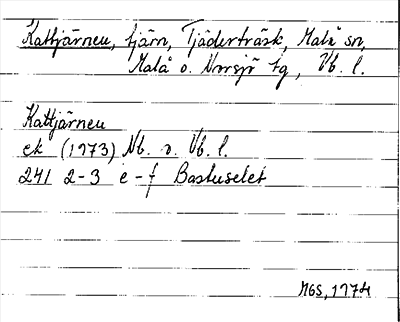 Kattjärnen, tjärn, Tjäderträsk, Malå sn,
Malå o. Norsjö tg, Vb. l.
Kattjärnen
ek (1973) Nb. o. Vb. l.
241 2-3 e-f Bastuselet
MGS, 1974